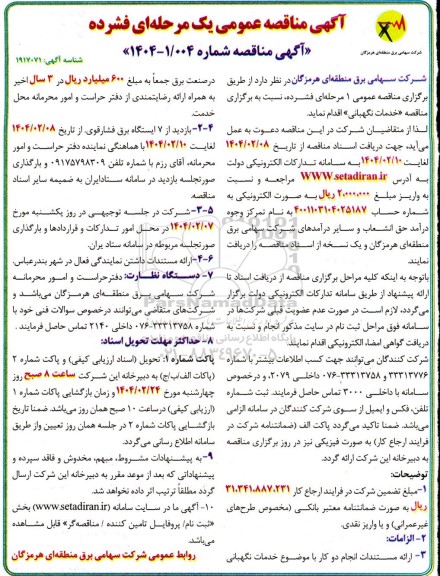 آگهی مناقصه عمومی یک مرحله‌ای فشرده
«آگهی مناقصه شماره ۱۴۰۴-۱/۰۰۴»
شرکت سهامی برق منطقه‌ای هرمزگان
شناسه آگهی: ۱۹۱۷۰۷۱
شرکت سهامی برق منطقه‌ای هرمزگان در نظر دارد از طریق
برگزاری مناقصه عمومی ۱ مرحله‌ای فشرده، نسبت به برگزاری
مناقصه «خدمات نگهبانی» اقدام نماید.
لذا از متقاضیان شرکت در این مناقصه دعوت به عمل
می‌آید، جهت دریافت اسناد مناقصه از تاریخ ۱۴۰۴/۰۲/۰۸
لغایت ۱۴۰۴/۰۲/۱۰ به سامانه تدارکات الکترونیکی دولت
به آدرس WWW.setadiran.ir مراجعه و نسبت
به واریز مبلغ ۲.۰۰۰.۰۰۰ ریال به صورت الکترونیکی به
شماره حساب ۴۰۰۱۱۰۳۱۰۴۰۲۵۱۸۷ به نام تمرکز وجوه
درآمد حق انشعاب و سایر درآمدهای شرکت سهامی برق
منطقه‌ای هرمزگان و یک نسخه از اسناد مناقصه را دریافت
نمایند.
باتوجه به اینکه کلیه مراحل برگزاری مناقصه از دریافت اسناد تا
ارائه پیشنهاد از طریق سامانه تدارکات الکترونیکی دولت برگزار
می‌گردد، لازم است در صورت عدم عضویت قبلی شرکت‌ها در
سامانه فوق مراحل ثبت نام در سایت مذکور انجام و نسبت به
دریافت گواهی امضا الکترونیکی اقدام نمایند.
شرکت کنندگان می‌توانند جهت کسب اطلاعات بیشتر با شماره
۳۳۳۱۷۷۶ و ۳۳۳۱۳۷۵۸-۰۷۶ داخلی ۲۰۷۹، و درخصوص
سامانه با داخلی ۳۰۰۰ تماس حاصل فرمایند. ثبت شماره
تلفن، فکس و ایمیل از سوی شرکت کنندگان در سامانه الزامی
می‌باشد. ضمنا تاکید می‌گردد پاکت الف (ضمانتنامه شرکت در
فرایند ارجاع کار) به صورت فیزیکی نیز در روز برگزاری مناقصه
به دبیرخانه این شرکت ارائه گردد.
توضیحات:
۱-مبلغ تضمین شرکت در فرایند ارجاع کار ۳۱.۳۴۱.۸۸۷.۲۳۱
ریال به صورت ضمانتنامه معتبر بانکی (مخصوص طرح‌های
غیرعمرانی) و یا واریز نقدی.
۲- الزامات:
۳- ارائه مستندات انجام دو کار با موضوع خدمات نگهبانی
درصنعت برق جمعاً به مبلغ ۶۰۰ میلیارد ریال در ۳ سال اخیر
به همراه ارائه رضایتمندی از دفتر حراست و امور محرمانه محل
خدمت.
۴-۲-بازدید از ۷ ایستگاه برق فشارقوی از تاریخ ۱۴۰۴/۰۲/۰۸
لغایت ۱۴۰۴/۰۲/۱۰ با هماهنگی نماینده دفتر حراست و امور
محرمانه، آقای رزم با شماره تلفن ۰۹۱۷۵۷۹۸۳۰۹ و بارگذاری
صورتجلسه بازدید در سامانه ستادایران به ضمیمه سایر اسناد
مناقصه.
۵-۳-شرکت در جلسه توجیهی در روز یکشنبه مورخ
۱۴۰۴/۰۲/۰۷ در محل امور تدارکات و قراردادها و بارگذاری
صورتجلسه مربوطه در سامانه ستاد یران.
۶-۴-ارائه مستندات داشتن نمایندگی فعال در شهر بندرعباس.
۷- دستگاه نظارت: دفتر حراست و امور محرمانه
شرکت سهامی برق منطقه‌ای هرمزگان می‌باشد و
شرکت‌های متقاضی می توانند درخصوص سوالات فنی خود با
شماره ۳۳۳۱۳۷۵۸-۰۷۶ داخلی ۲۱۴۰ تماس حاصل فرمایند .
۸- حداکثر مهلت تحویل اسناد:
پاکت شماره ۱: تحویل (اسناد ارزیابی کیفی) و پاکت شماره ۲
(پاکات الف/ب/ج) به دبیرخانه این شرکت ساعت ۸ صبح روز
چهارشنبه مورخ ۱۴۰۴/۰۲/۲۴ و زمان بازگشایی پاکات شماره ۱
(ارزیابی کیفی) درساعت ۱۰ صبح همان روز می‌باشد. ضمنا تاریخ
بازگشایی پاکات شماره ۲ در جلسه همان روز تعیین و از طریق
سامانه اطلاع رسانی می‌گردد.
۹-به پیشنهادات مشروط، مبهم، مخدوش و فاقد سپرده و
پیشنهاداتی که بعد از موعد مقرر به دبیرخانه این شرکت ارسال
گردد مطلقاً ترتیب اثر داده نخواهد شد.
۱۰- آگهی ما در سایت سامانه (www.setadiran.ir) بخش
«ثبت نام/ پروفایل تامین کننده / مناقصه‌گر» قابل مشاهده
می‌باشد.
روابط عمومی شرکت سهامی برق منطقه‌ای هرمزگان